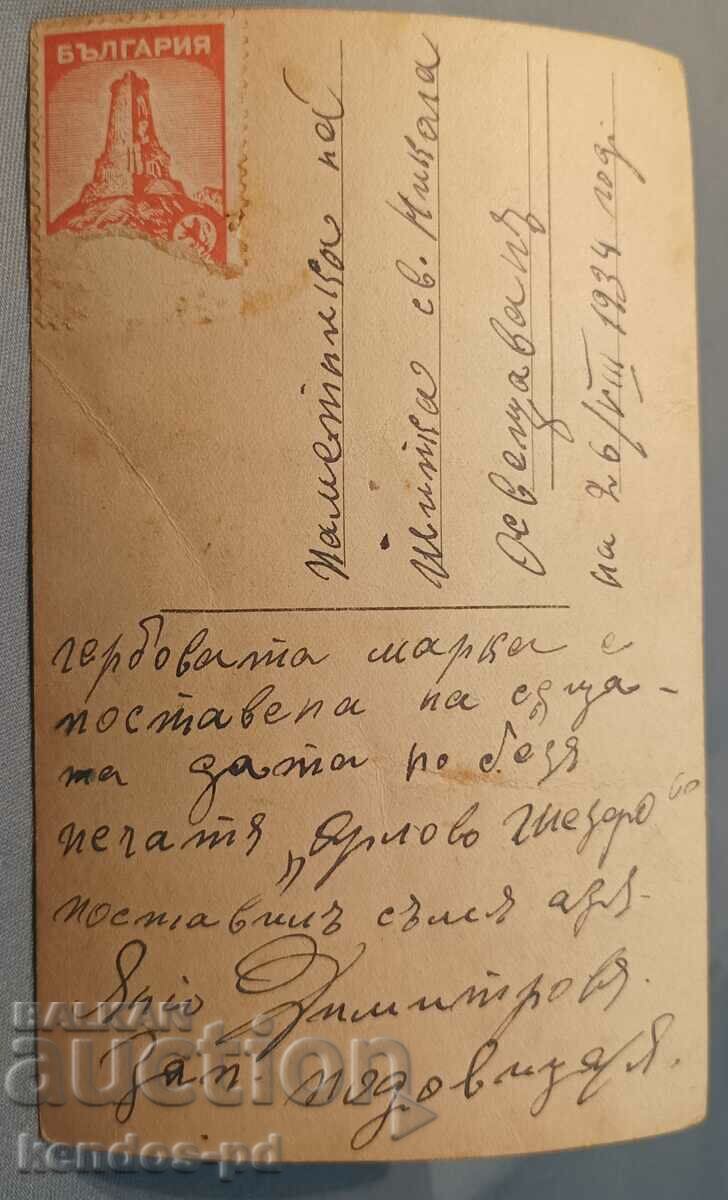 БЪЛГАРИЯ
Паметника на
Шипка св. Никола
Освещаванъ
на 26/VIII 1934 год.
гербовата марка е
поставена на сѫща-
та дата но безъ
печатъ „Орлово гнездо“
поставилъ съмъ азъ.
Димитровъ.
Зап.
BALKAN
auction
kendos-pd